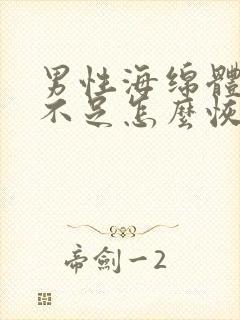 男性海绵體
不足怎麼恢
帝劍一2